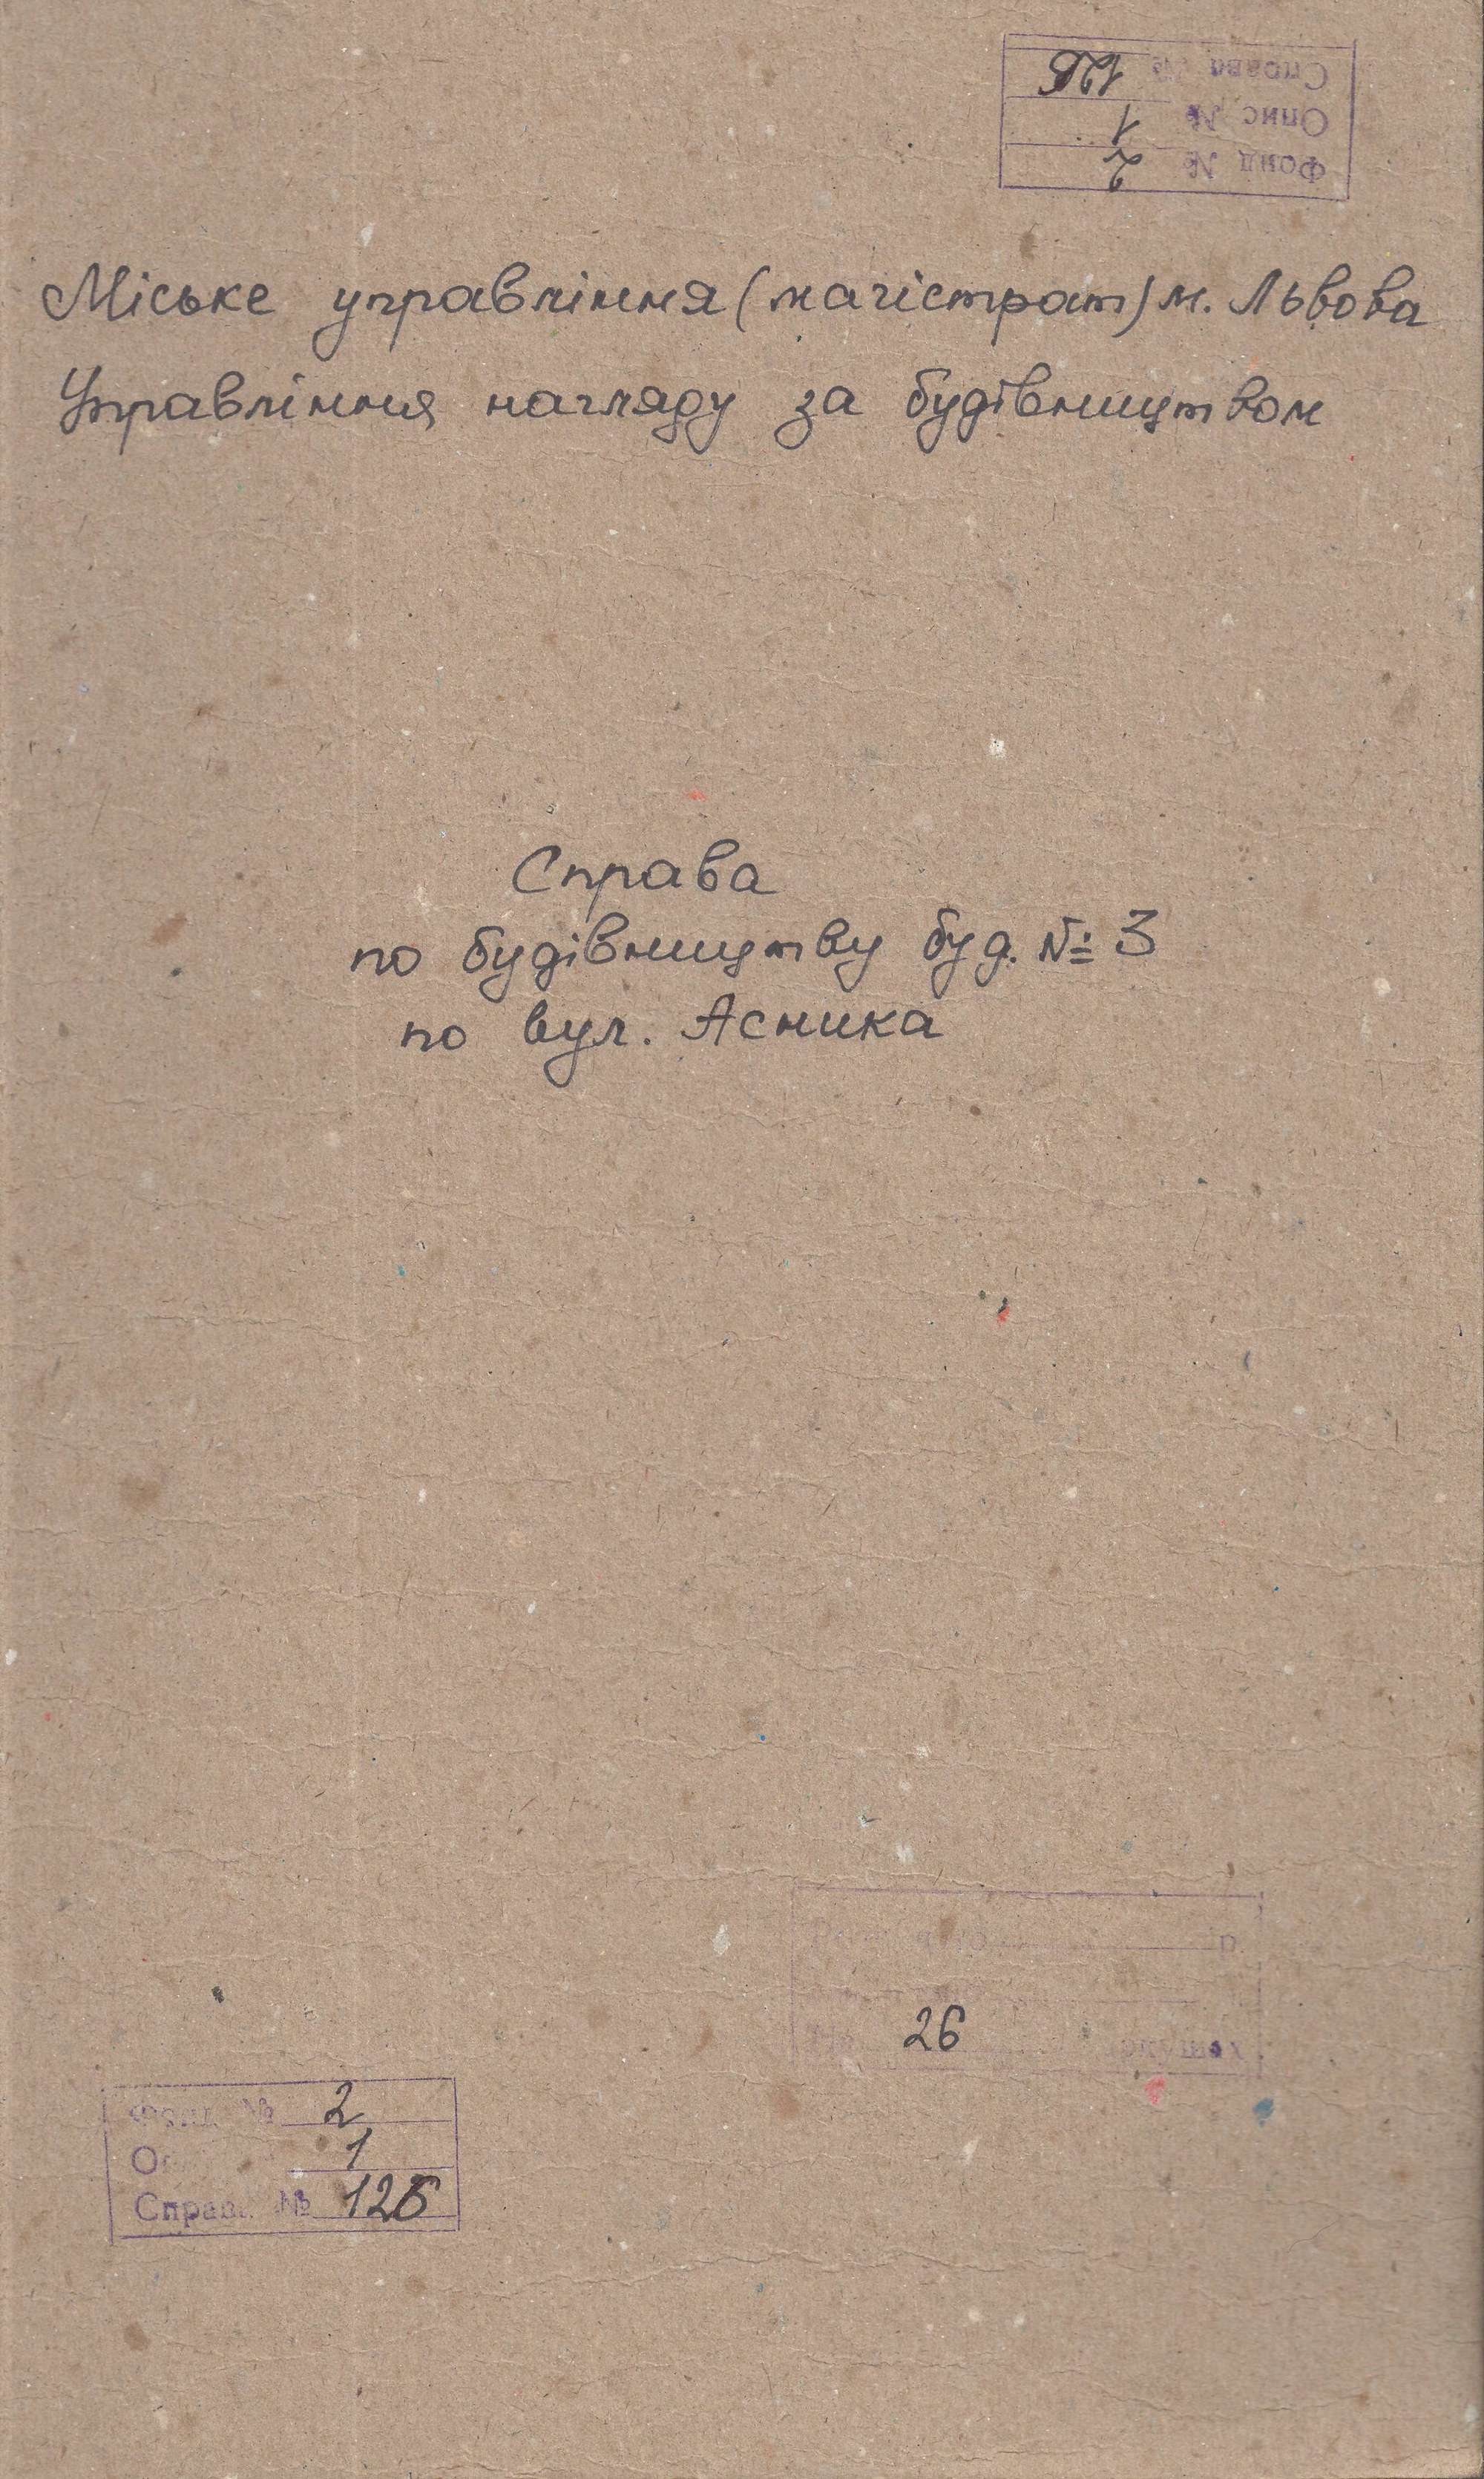 Справа № 126
Опис № 1
Фонд № 2
Міське управління (магістрат) м. Львова
Управління нагляду за будівництвом
Справа
по будівництву буд. № 3
по вул. Асника
р.
26 аркушах
Фонд № 2
Опис 1
Справа № 126